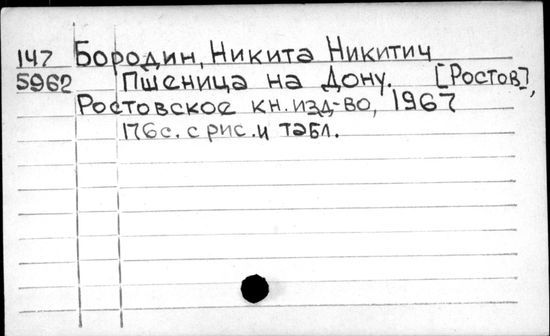 147 Бородин, Никита Никитич
5962 Пшеница на Дону. [Ростов],
Ростовское кн.изд-во, 1967
176с. с рис. и табл.